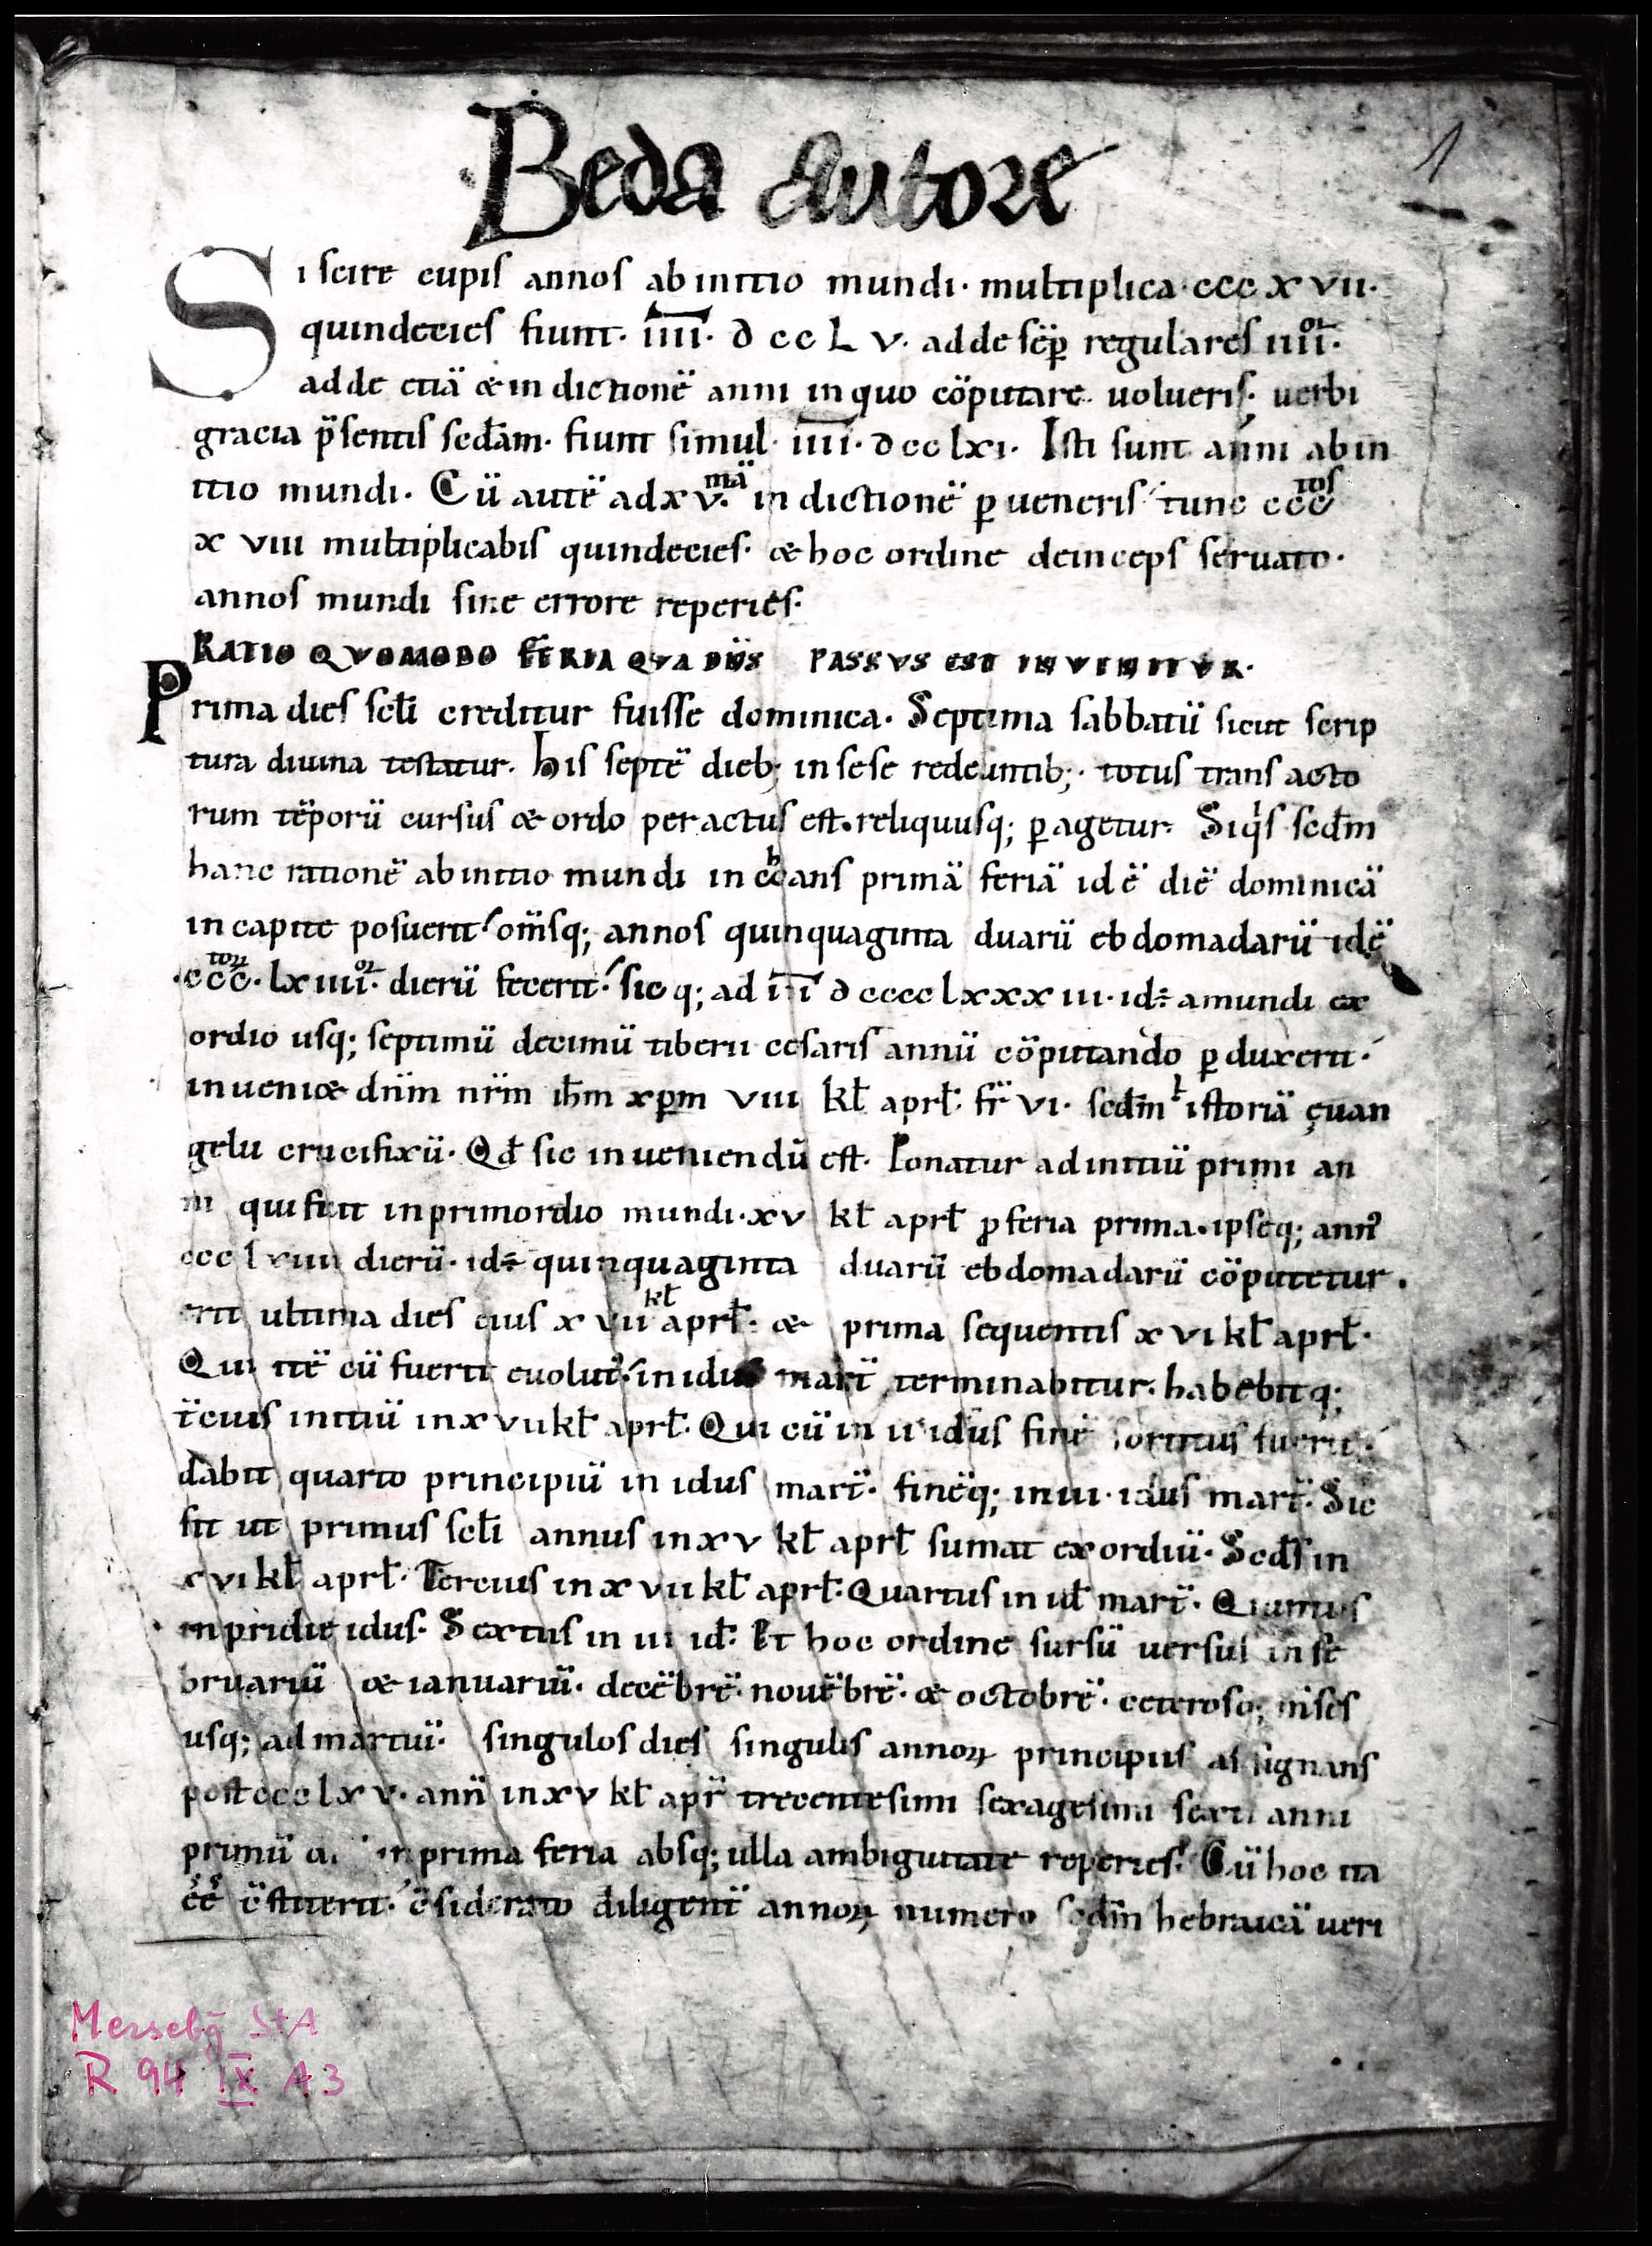 Beda autore
1
Si scire cupis annos ab initio mundi· multiplica· ccc x vii·
quindecies fiunt· i̅i̅i̅i̅· d cc L v· adde sēp regulares iiii^or·
adde etiā & indictionē anni in quo cōputare uolueris· uerbi
gracia p̄sentis sedam· fiunt simul· i̅i̅i̅i̅· dcclxi· Isti sunt anni ab in
itio mundi· Cū autē ad xv^mā indictionē ꝑueneris tunc ccc^tos
x viii multiplicabis quindecies· & hoc ordine deinceps seruato·
annos mundi sine errore reperies·
RATIO QVOMODO FERIA QVA DN̄S PASSVS EST INVENITVR·
Prima dies sc̄li creditur fuisse dominica· Septima sabbatū sicut scrip
tura diuina testatur· His septē dieb; in sese redeuntib;· totus transacto
rum tēporū cursus & ordo peractus est· reliquusq; ꝑagetur· Siq́s scd̄m
hanc rationē ab initio mundi inchoans primā feriā idē diē dominicā
in capite posuerit om̄sq; annos quinquaginta duarū ebdomadarū idē
·ccc^torum· lxiiii^or· dierū fecerit· sicq; ad i̅i̅i̅ d cccc lxxx iii· id÷ a mundi ex
ordio usq; septimū decimū tiberii cesaris annū cōputando ꝑduxerit·
inueni& dn̄m nr̄m ih̄m xp̄m viii kł aprł· fr̄ vi· scd̄m ^historiā ęuan
gelii crucifixū· Qđ sic inueniendū est· Ponatur ad initiū primi an
ni qui fuit in primordio mundi· xv kł aprł ꝓ feria prima· ipseq; ann᷒
ccc lxiiii dierū· id÷ quinquaginta duarū ebdomadarū cōputetur·
erit ultima dies eius x vii ^kł aprł· & prima sequentis x vi kł aprł·
Qui itē cū fuerit euolut᷒· in idus mart̄ terminabitur· habebitq;
t̄cius initiū in x vii kł aprł· Qui cū in ii idus finē sortitus fuerit·
dabit quarto principiū in idus mart̄· finēq; in iii· idus mart̄· Sic
fit ut primus sc̄li annus in x v kł aprł sumat exordiū· Scđs in
x vi kł aprł· Tercius in x vii kł aprł· Quartus in iđ mart̄· Quintus
in pridie idus· Sextus in iii iđ· Et hoc ordine sursū uersus in fe
bruariū & ianuariū· decēbrē· nouēbrē· & octobrē· ceterosq; mīses
usq; ad martiū· singulos dies singulis annoꝝ principiis assignans
post ccc lx v· ann̄ in xv kł apr̄ trecentesimi sexagesimi sexti anni
primū in prima feria absq; ulla ambiguitate reperies· Cū hoc ita
ēē cstiterit· csiderato diligent̄ annoꝝ numero scd̄m hebraicā ueri
Mersebg StA
R 94 IX A3